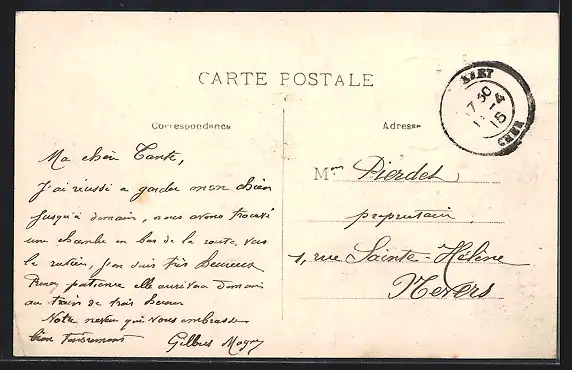 CARTE POSTALE
Correspondance
Adresse
17 30
11-4
15
CHER
Ma chère Tante,
J'ai réussi a garder mon chien
jusqu'à demain, nous avons trouvé
une chambre en bas de la route, vers
la , j'en suis très heureux
Prenez patience elle arrivera demain
au train de trois heures
Notre neveu qui vous embrasse
bien tendrement
Gilbert
Mme Pierdet
propriétaire
1, rue Sainte-Hélène
Nevers